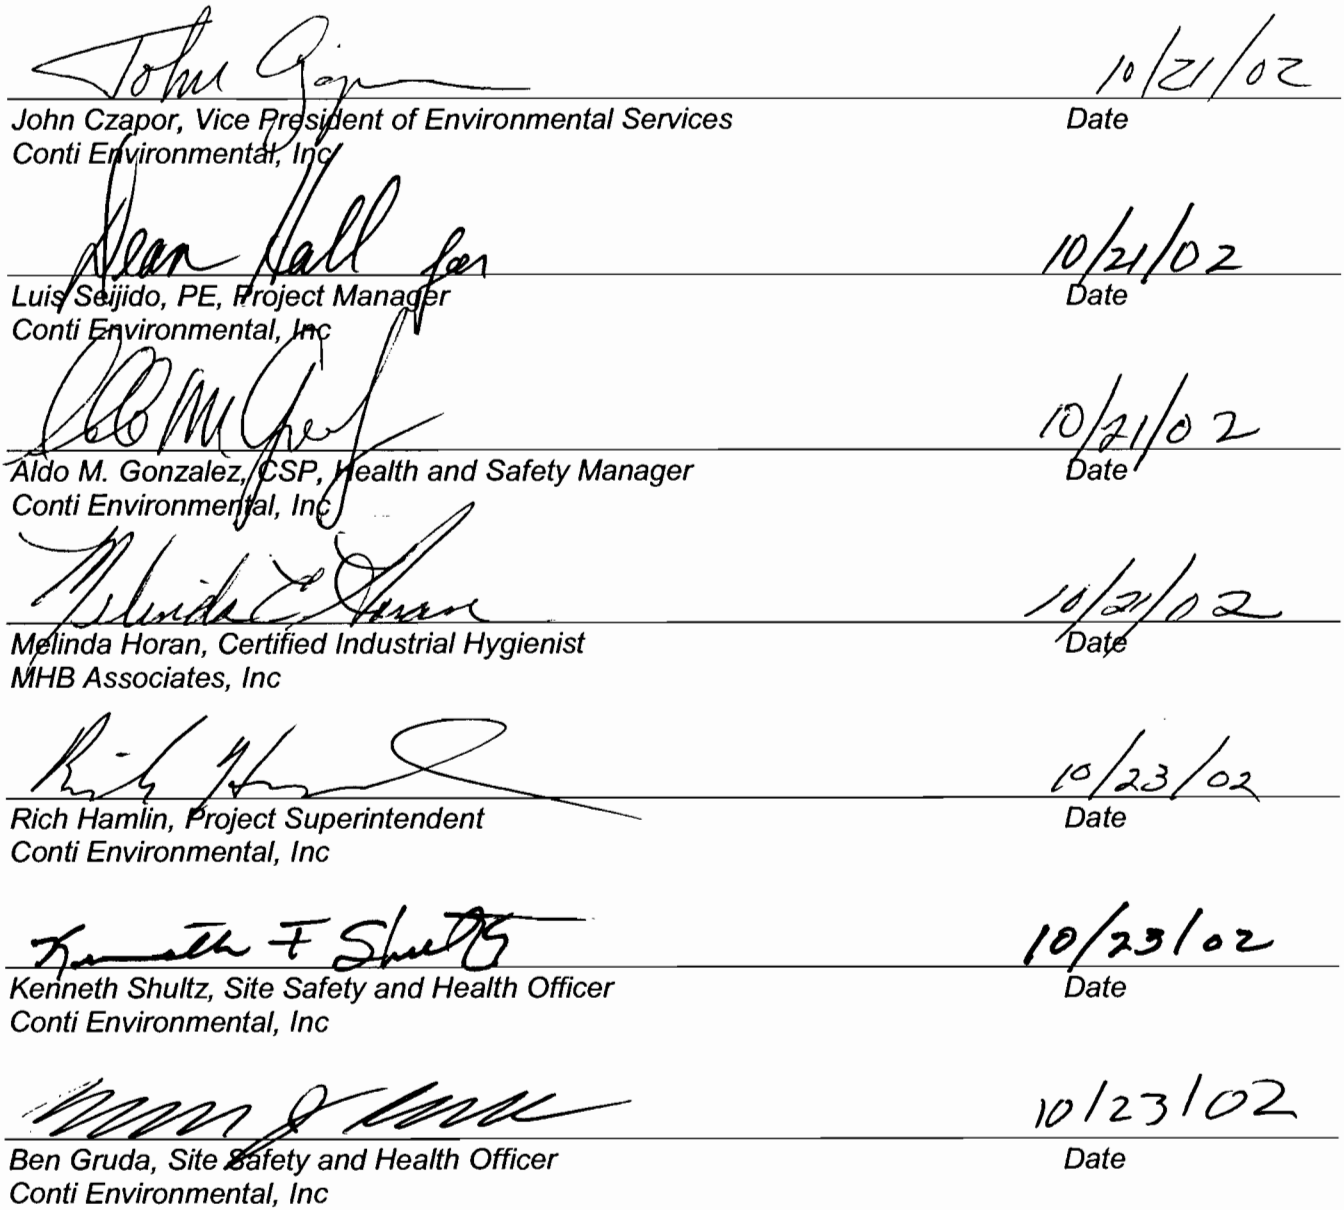 John Czapor 10/21/02
John Czapor, Vice President of Environmental Services Date
Conti Environmental, Inc
Dean Hall for 10/21/02
Luis Seijido, PE, Project Manager Date
Conti Environmental, Inc
10/21/02
Aldo M. Gonzalez, CSP, Health and Safety Manager Date
Conti Environmental, Inc
Melinda E Horan 10/21/02
Melinda Horan, Certified Industrial Hygienist Date
MHB Associates, Inc
Rich 10/23/02
Rich Hamlin, Project Superintendent Date
Conti Environmental, Inc
Kenneth F Shultz 10/23/02
Kenneth Shultz, Site Safety and Health Officer Date
Conti Environmental, Inc
10/23/02
Ben Gruda, Site Safety and Health Officer Date
Conti Environmental, Inc